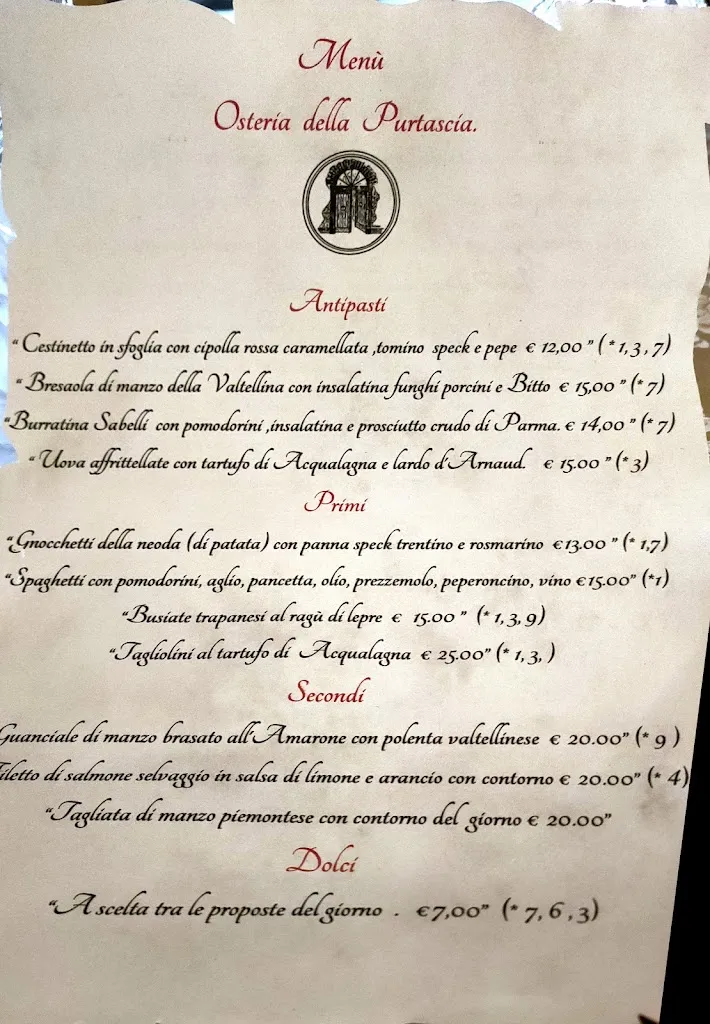 Menù
Osteria della Purtascia.
Antipasti
" Cestinetto in sfoglia con cipolla rossa caramellata ,tomino speck e pepe € 12,00 " ( * 1, 3 , 7)
" Bresaola di manzo della Valtellina con insalatina funghi porcini e Bitto € 15,00 " (* 7)
"Burratina Sabelli con pomodorini ,insalatina e prosciutto crudo di Parma. € 14,00 " (* 7)
" Uova affrittellate con tartufo di Acqualagna e lardo d'Arnaud. € 15.00 " (* 3)
Primi
"Gnocchetti della neoda (di patata) con panna speck trentino e rosmarino €13.00 " (* 1,7)
"Spaghetti con pomodorini, aglio, pancetta, olio, prezzemolo, peperoncino, vino €15.00" (*1)
"Busiate trapanesi al ragù di lepre € 15.00 " (* 1, 3, 9)
"Tagliolini al tartufo di Acqualagna € 25.00" (* 1, 3, )
Secondi
Guanciale di manzo brasato all'Amarone con polenta valtellinese € 20.00" (* 9 )
Filetto di salmone selvaggio in salsa di limone e arancio con contorno € 20.00" (* 4)
"Tagliata di manzo piemontese con contorno del giorno € 20.00"
Dolci
"A scelta tra le proposte del giorno . €7,00" (* 7, 6 , 3)